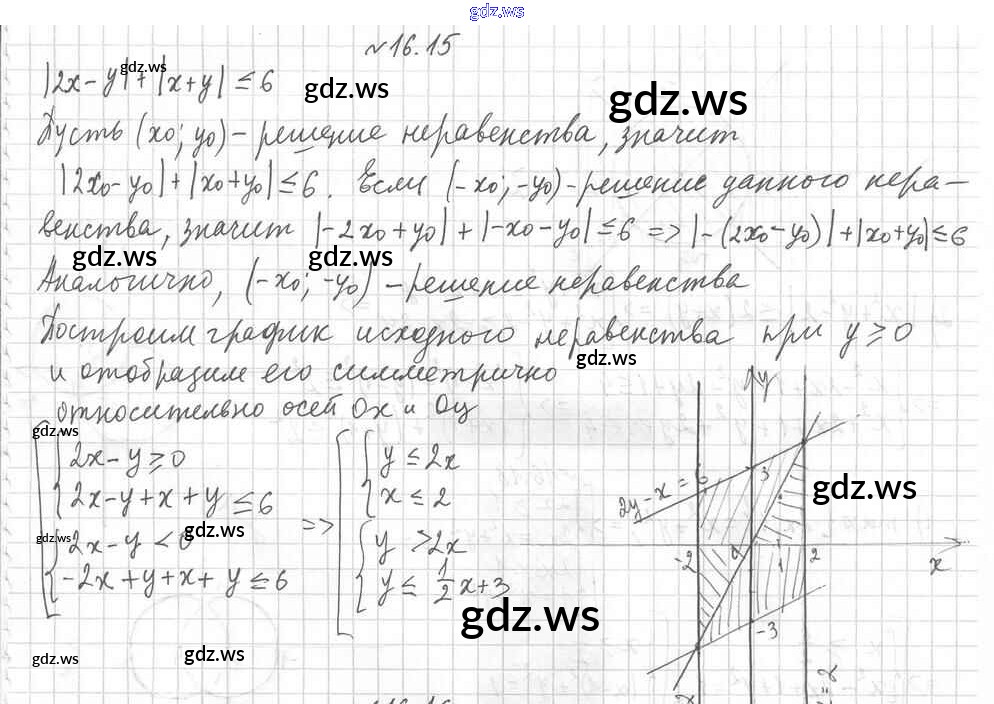 gdz.ws
№16.15
gdz.ws
|2x-y|+|x+y| ≤ 6
gdz.ws
gdz.ws
Пусть (x₀; y₀) - решение неравенства, значит
|2x₀-y₀|+|x₀+y₀| ≤ 6. Если (-x₀; -y₀) - решение данного нера-
венства, значит |-2x₀+y₀|+|-x₀-y₀| ≤ 6 => |-(2x₀-y₀)|+|x₀+y₀| ≤ 6
gdz.ws
gdz.ws
Аналогично, (-x₀; -y₀) - решение неравенства
Построим график исходного неравенства при y ≥ 0
gdz.ws
и отобразим его симметрично
относительно осей Ox и Oy
gdz.ws
2x-y ≥ 0
2x-y+x+y ≤ 6
gdz.ws
gdz.ws
2x-y < 0
-2x+y+x+y ≤ 6
=>
y ≤ 2x
x ≤ 2
y > 2x
y ≤ 1/2 x+3
gdz.ws
gdz.ws
gdz.ws
y
2y-x=6
3
gdz.ws
-2
0
1
2
x
-3
16.16